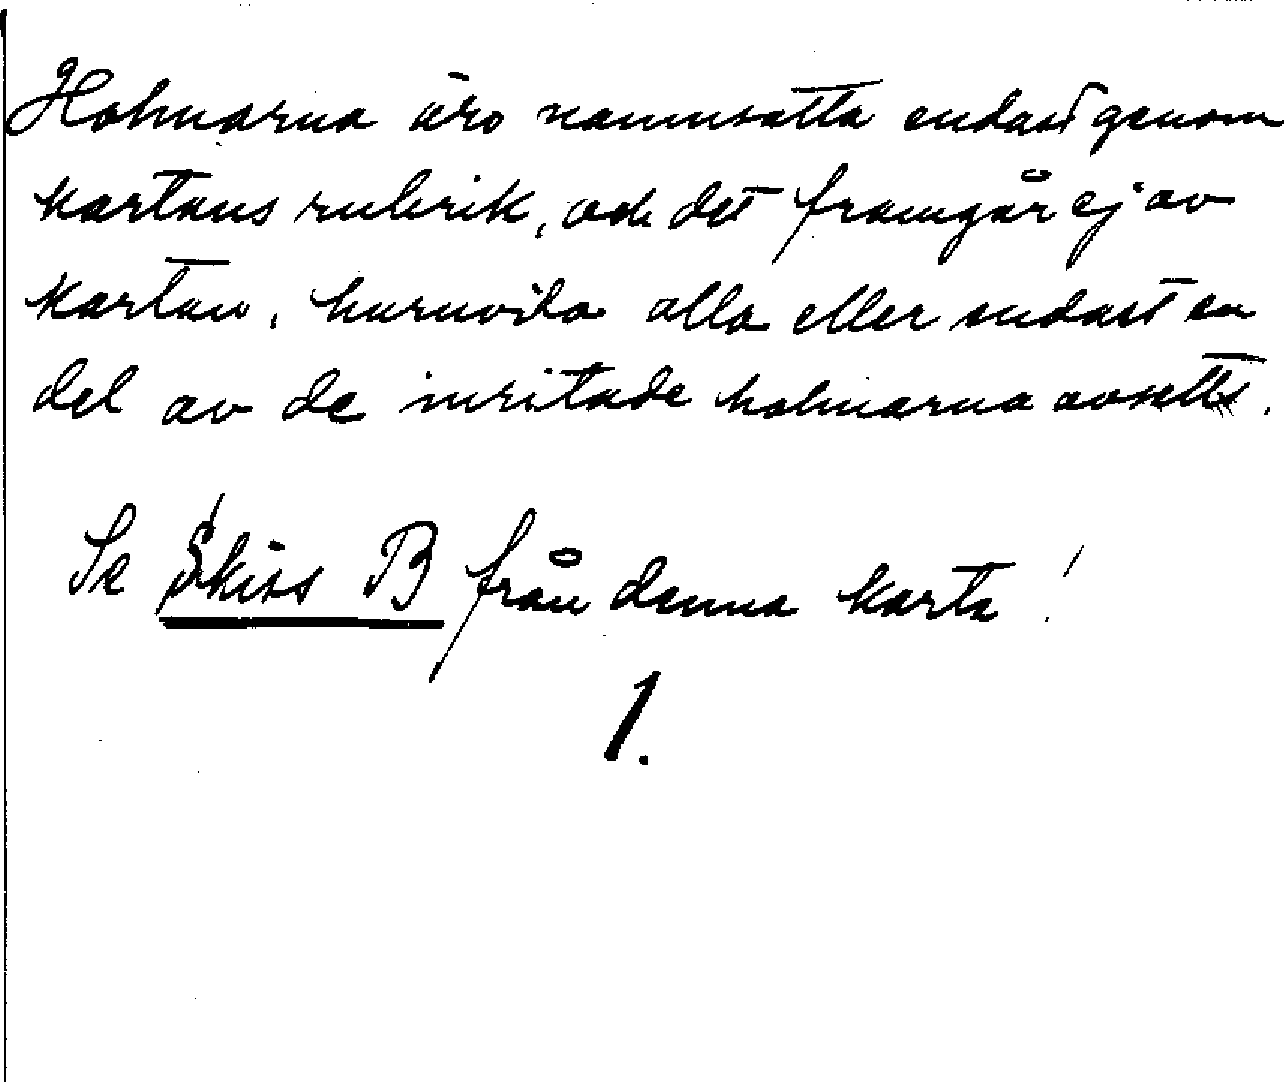 Holmarna äro namnsatta endast genom
kartans rubrik, och det framgår ej av
kartan, huruvida alla eller endast en
del av de inritade holmarna avsetts.
Se Skiss B från denna karta!
1.